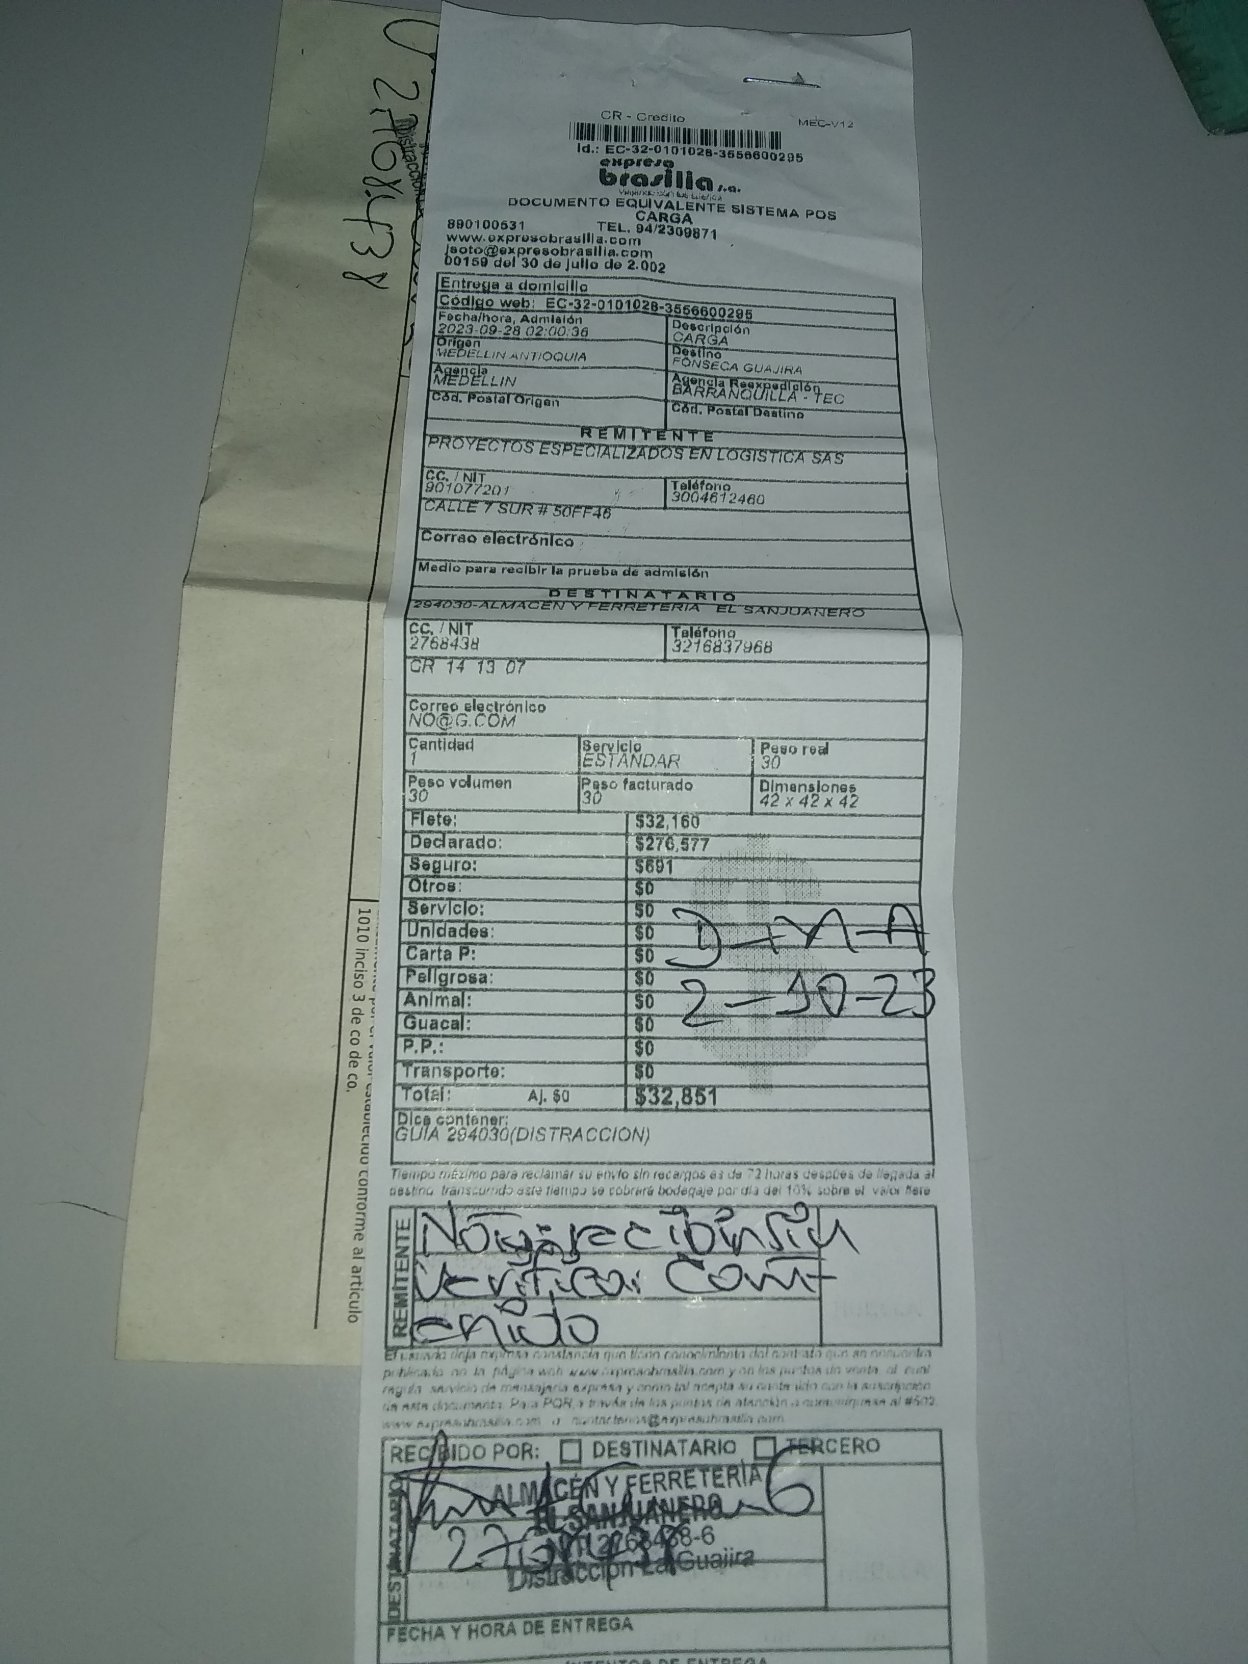 CR - Credito MEC-V12
Id.: EC-32-0101028-3556600295
expreso
brasilia s.a.
DOCUMENTO EQUIVALENTE SISTEMA POS
CARGA
890100531 TEL. 94/2309871
www.expresobrasilia.com
jsoto@expresobrasilia.com
00159 del 30 de julio de 2.002
Entrega a domicilio
Código web: EC-32-0101028-3556600295
Fecha/hora, Admisión Descripción
2023-09-28 02:00:36 CARGA
Origen Destino
MEDELLIN ANTIOQUIA FONSECA GUAJIRA
Agencia Agencia Reexpedición
MEDELLIN BARRANQUILLA - TEC
Cód. Postal Origen Cód. Postal Destino
REMITENTE
PROYECTOS ESPECIALIZADOS EN LOGISTICA SAS
CC. / NIT Teléfono
901077201 3004612460
CALLE 7 SUR # 50FF46
Correo electrónico
Medio para recibir la prueba de admisión
DESTINATARIO
294030-ALMACEN Y FERRETERIA EL SANJUANERO
CC. / NIT Teléfono
2768438 3216837968
CR 14 13 07
Correo electrónico
NO@G.COM
Cantidad Servicio Peso real
1 ESTANDAR 30
Peso volumen Peso facturado Dimensiones
30 30 42 x 42 x 42
Flete: $32,160
Declarado: $276,577
Seguro: $691
Otros: $0
Servicio: $0
Unidades: $0
Carta P: $0
Peligrosa: $0
Animal: $0
Guacal: $0
P.P.: $0
Transporte: $0
Total: Aj. $0 $32,851
D-M-A
2-10-23
Dice contener:
GUIA 294030(DISTRACCION)
Tiempo máximo para reclamar su envío sin recargos es de 72 horas después de llegada al
destino, transcurrido este tiempo se cobrará bodegaje por día del 10% sobre el valor flete
REMITENTE
recibin sin
verificar Cont
enido
El usuario deja expresa constancia que tiene conocimiento del contrato que se encuentra
publicado en la página web www.expresobrasilia.com y en los puntos de venta, el cual
regula servicio de mensajería expresa y como tal acepta su contenido con la suscripción
de este documento. Para PQR a través de los puntos de atención o comunicarse al #502
www.expresobrasilia.com o contactenos@expresobrasilia.com
RECIBIDO POR: DESTINATARIO TERCERO
DESTINATARIO
ALMACÉN Y FERRETERÍA
EL SANJUANERO
NIT 2768438-6
Distracción La Guajira
2768438
FECHA Y HORA DE ENTREGA
INTENTOS DE ENTREGA
2768438
Distracción
establecido conforme al articulo
1010 inciso 3 de co de co.